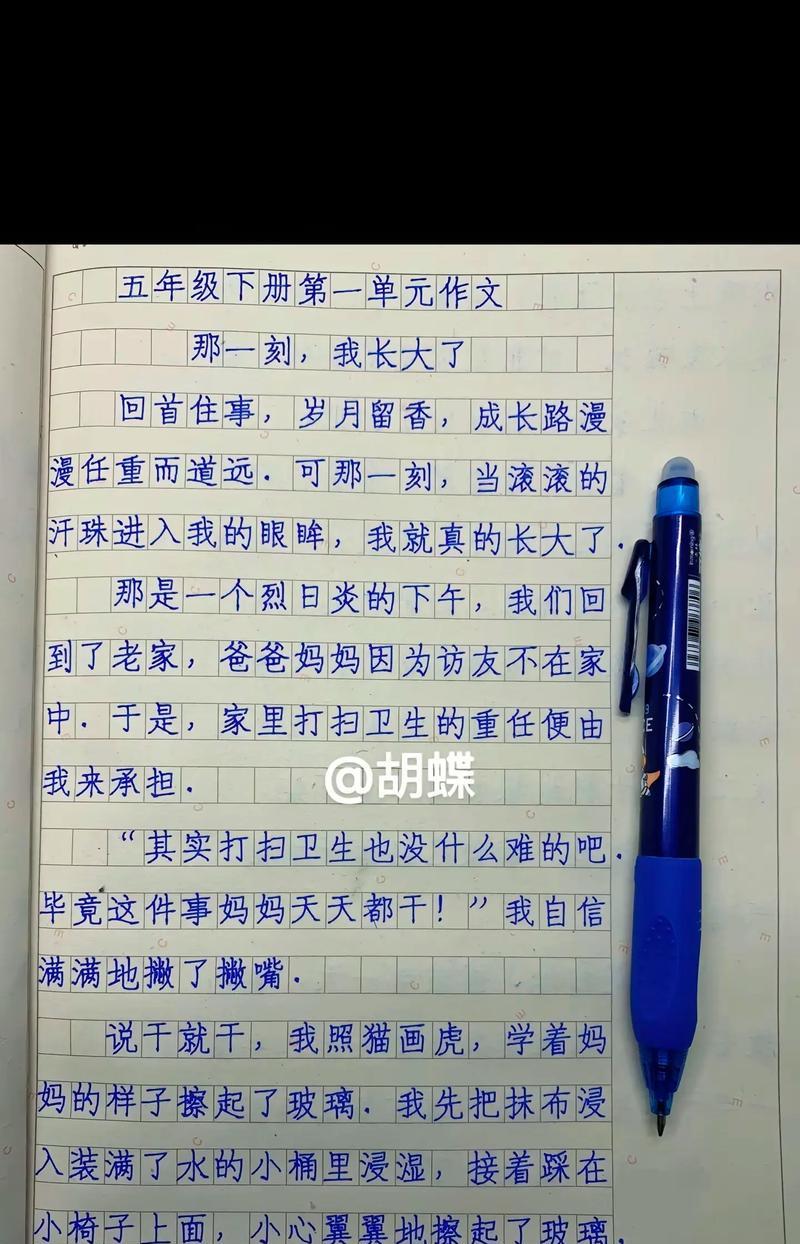 五年级下册第一单元作文
那一刻，我长大了
回首住事，岁月留香，成长路漫
漫任重而道远．可那一刻，当滚滚的
汗珠进入我的眼眸，我就真的长大了．
那是一个烈日炎的下午，我们回
到了老家，爸爸妈妈因为访友不在家
中．于是，家里打扫卫生的重任便由
我来承担．
@胡蝶
“其实打扫卫生也没什么难的吧．
毕竟这件事妈妈天天都干！”我自信
满满地撇了撇嘴．
说干就干，我照猫画虎，学着妈
妈的样子擦起了玻璃．我先把抹布浸
入装满了水的小桶里浸湿，接着踩在
小椅子上面，小心翼翼地擦起了玻璃．